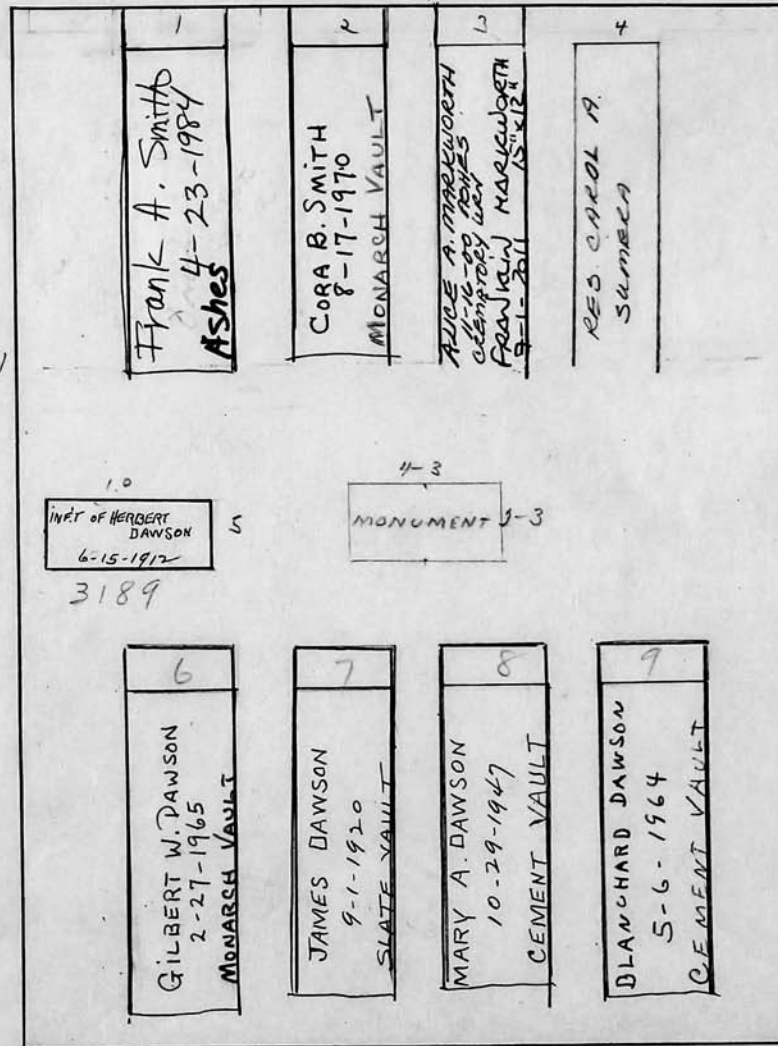 1
Frank A. Smith
4-23-1984
Ashes
2
CORA B. SMITH
8-17-1970
MONARCH VAULT
3
ALICE A. MARKWORTH
11-16-00 ASHES
CREMATORY URN
FRANKLIN MARKWORTH
9-1-2011 15"x12"
4
RES. CAROL A.
SUMERA
1.0
INF.T OF HERBERT
DAWSON
6-15-1912
5
3189
4-3
MONUMENT 2-3
6
GILBERT W. DAWSON
2-27-1965
MONARCH VAULT
7
JAMES DAWSON
9-1-1920
SLATE VAULT
8
MARY A. DAWSON
10-29-1947
CEMENT VAULT
9
BLANCHARD DAWSON
5-6-1964
CEMENT VAULT